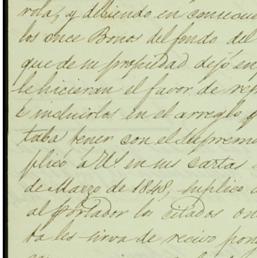 rola, y debiendo en consecu
los once Bonos del fondo del
que de su propiedad dejó en
le hicieran el favor de re
e incluirlos en el arreglo q
taba tener con el Supremo
plico a U en mis cartas
de Marzo de 1848, suplico
al portador los citados on
ta les sirva de recivo pon